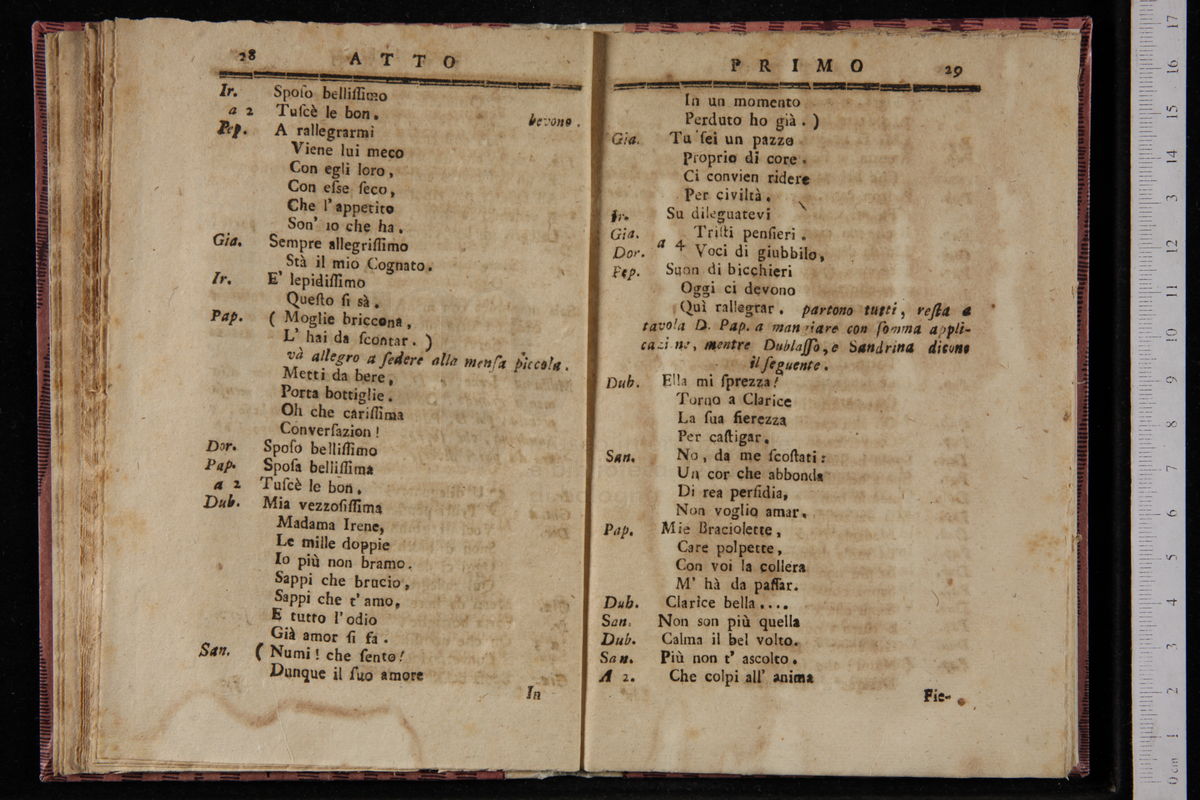 28 ATTO
Ir. Spoſo belliſſimo
a 2 Tuſcè le bon. bevono.
Pep. A rallegrarmi
Viene lui meco
Con egli loro,
Con eſse ſeco,
Che l'appetito
Son' io che ha.
Gia. Sempre allegriſſimo
Stà il mio Cognato.
Ir. E' lepidiſſimo
Queſto ſi sà.
Pap. ( Moglie briccona,
L' hai da ſcontar. )
và allegro a ſedere alla menſa piccola.
Metti da bere,
Porta bottiglie.
Oh che cariſſima
Converſazion!
Dor. Spoſo belliſſimo
Pap. Spoſa belliſſima
a 2 Tuſcè le bon.
Dub. Mia vezzoſiſſima
Madama Irene,
Le mille doppie
Io più non bramo.
Sappi che brucio,
Sappi che t'amo,
E tutto l'odio
Già amor ſi fa.
San. ( Numi! che ſento!
Dunque il ſuo amore
In
PRIMO 29
In un momento
Perduto ho già. )
Gia. Tu ſei un pazzo
Proprio di core.
Ci convien ridere
Per civiltà.
Ir. Su dileguatevi
Gia. Triſti penſieri.
Dor. a 4 Voci di giubbilo,
Pep. Suon di bicchieri
Oggi ci devono
Quì rallegrar. partono tutti, reſta a
tavola D. Pap. a mangiare con ſomma appli-
cazione, mentre Dublaſſo, e Sandrina dicono
il ſeguente.
Dub. Ella mi ſprezza!
Torno a Clarice
La ſua fierezza
Per caſtigar.
San. No, da me ſcoſtati:
Un cor che abbonda
Di rea perfidia,
Non voglio amar.
Pap. Mie Braciolette,
Care polpette,
Con voi la collera
M' hà da paſſar.
Dub. Clarice bella....
San. Non son più quella
Dub. Calma il bel volto.
San. Più non t' ascolto.
A 2. Che colpi all' anima
Fie-